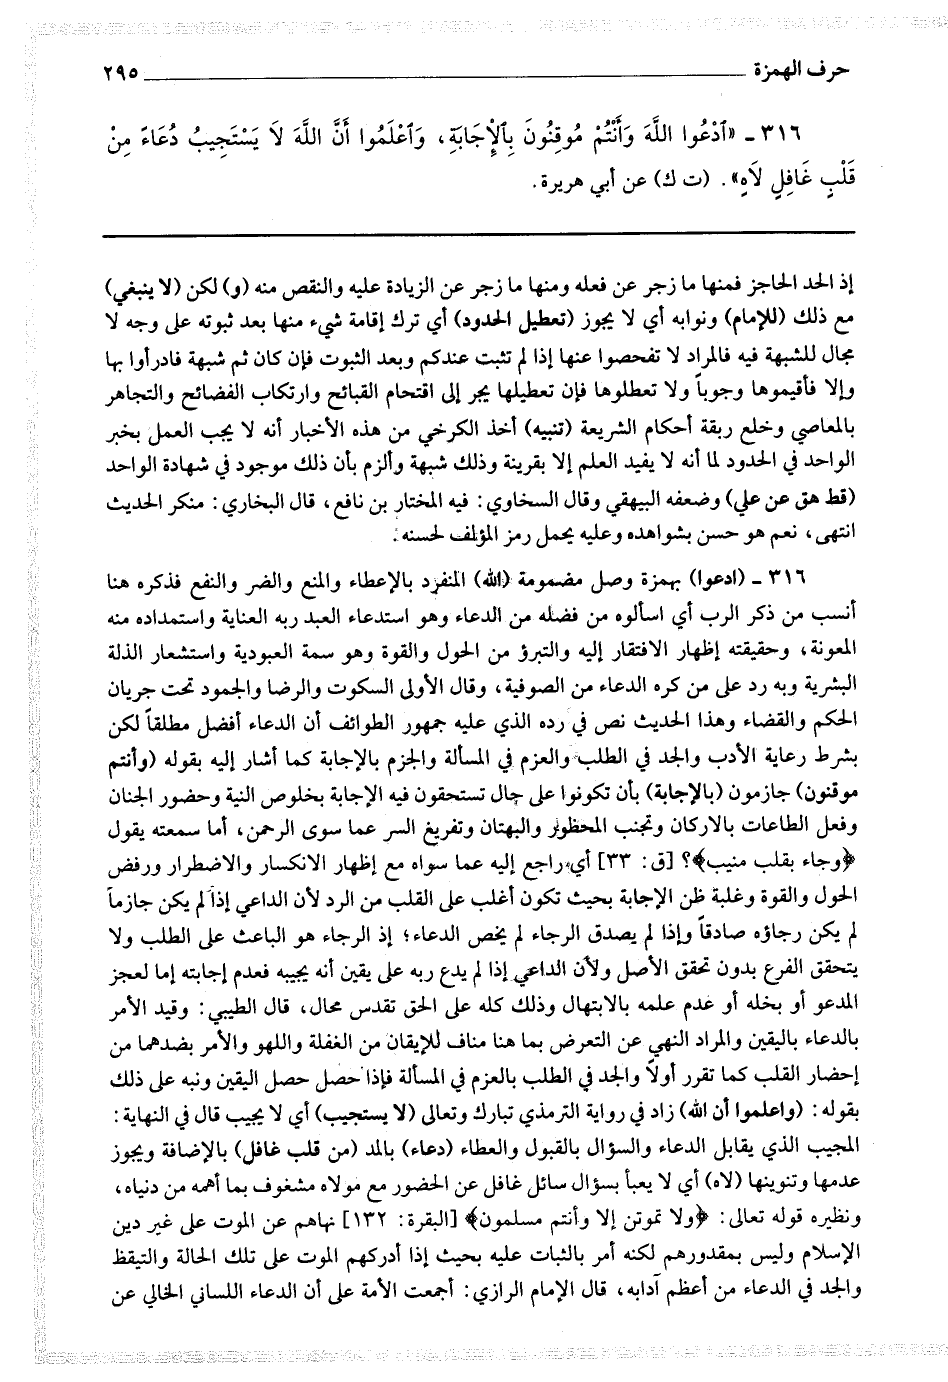 حرف الهمزة ٢٩٥
٣١٦ ـ «ٱدْعُوا اللَّهَ وَأَنْتُمْ مُوقِنُونَ بِٱلْإِجَابَةِ، وَٱعْلَمُوا أَنَّ اللَّهَ لَا يَسْتَجِيبُ دُعَاءً مِنْ
قَلْبٍ غَافِلٍ لَاهٍ». (ت ك) عن أبي هريرة.
إذ الحد الحاجز فمنها ما زجر عن فعله ومنها ما زجر عن الزيادة عليه والنقص منه (و) لكن (لا ينبغي)
مع ذلك (للإمام) ونوابه أي لا يجوز (تعطيل الحدود) أي ترك إقامة شيء منها بعد ثبوته على وجه لا
مجال للشبهة فيه فالمراد لا تفحصوا عنها إذا لم تثبت عندكم وبعد الثبوت فإن كان ثم شبهة فادرأوا بها
وإلا فأقيموها وجوباً ولا تعطلوها فإن تعطيلها يجر إلى اقتحام القبائح وارتكاب الفضائح والتجاهر
بالمعاصي وخلع ربقة أحكام الشريعة (تنبيه) أخذ الكرخي من هذه الأخبار أنه لا يجب العمل بخبر
الواحد في الحدود لما أنه لا يفيد العلم إلا بقرينة وذلك شبهة وألزم بأن ذلك موجود في شهادة الواحد
(قط هق عن علي) وضعفه البيهقي وقال السخاوي: فيه المختار بن نافع، قال البخاري: منكر الحديث
انتهى، نعم هو حسن بشواهده وعليه يحمل رمز المؤلف لحسنه.
٣١٦ ـ (ادعوا) بهمزة وصل مضمومة (الله) المنفرد بالإعطاء والمنع والضر والنفع فذكره هنا
أنسب من ذكر الرب أي اسألوه من فضله من الدعاء وهو استدعاء العبد ربه العناية واستمداده منه
المعونة، وحقيقته إظهار الافتقار إليه والتبرؤ من الحول والقوة وهو سمة العبودية واستشعار الذلة
البشرية وبه رد على من كره الدعاء من الصوفية، وقال الأولى السكوت والرضا والجمود تحت جريان
الحكم والقضاء وهذا الحديث نص في رده الذي عليه جمهور الطوائف أن الدعاء أفضل مطلقاً لكن
بشرط رعاية الأدب والجد في الطلب والعزم في المسألة والجزم بالإجابة كما أشار إليه بقوله (وأنتم
موقنون) جازمون (بالإجابة) بأن تكونوا على حال تستحقون فيه الإجابة بخلوص النية وحضور الجنان
وفعل الطاعات بالاركان وتجنب المحظور والبهتان وتفريغ السر عما سوى الرحمن، أما سمعته يقول
﴿وجاء بقلب منيب﴾؟ [ق: ٣٣] أي راجع إليه عما سواه مع إظهار الانكسار والاضطرار ورفض
الحول والقوة وغلبة ظن الإجابة بحيث تكون أغلب على القلب من الرد لأن الداعي إذا لم يكن جازماً
لم يكن رجاؤه صادقاً وإذا لم يصدق الرجاء لم يخص الدعاء؛ إذ الرجاء هو الباعث على الطلب ولا
يتحقق الفرع بدون تحقق الأصل ولأن الداعي إذا لم يدع ربه على يقين أنه يجيبه فعدم إجابته إما لعجز
المدعو أو بخله أو عدم علمه بالابتهال وذلك كله على الحق تقدس محال، قال الطيبي: وقيد الأمر
بالدعاء باليقين والمراد النهي عن التعرض بما هنا مناف للإيقان من الغفلة واللهو والأمر بضدهما من
إحضار القلب كما تقرر أولاً والجد في الطلب بالعزم في المسألة فإذا حصل حصل اليقين ونبه على ذلك
بقوله: (واعلموا أن الله) زاد في رواية الترمذي تبارك وتعالى (لا يستجيب) أي لا يجيب قال في النهاية:
المجيب الذي يقابل الدعاء والسؤال بالقبول والعطاء (دعاء) بالمد (من قلب غافل) بالإضافة ويجوز
عدمها وتنوينها (لاه) أي لا يعبأ بسؤال سائل غافل عن الحضور مع مولاه مشغوف بما أهمه من دنياه،
ونظيره قوله تعالى: ﴿ولا تموتن إلا وأنتم مسلمون﴾ [البقرة: ١٣٢] نهاهم عن الموت على غير دين
الإسلام وليس بمقدورهم لكنه أمر بالثبات عليه بحيث إذا أدركهم الموت على تلك الحالة والتيقظ
والجد في الدعاء من أعظم آدابه، قال الإمام الرازي: أجمعت الأمة على أن الدعاء اللساني الخالي عن